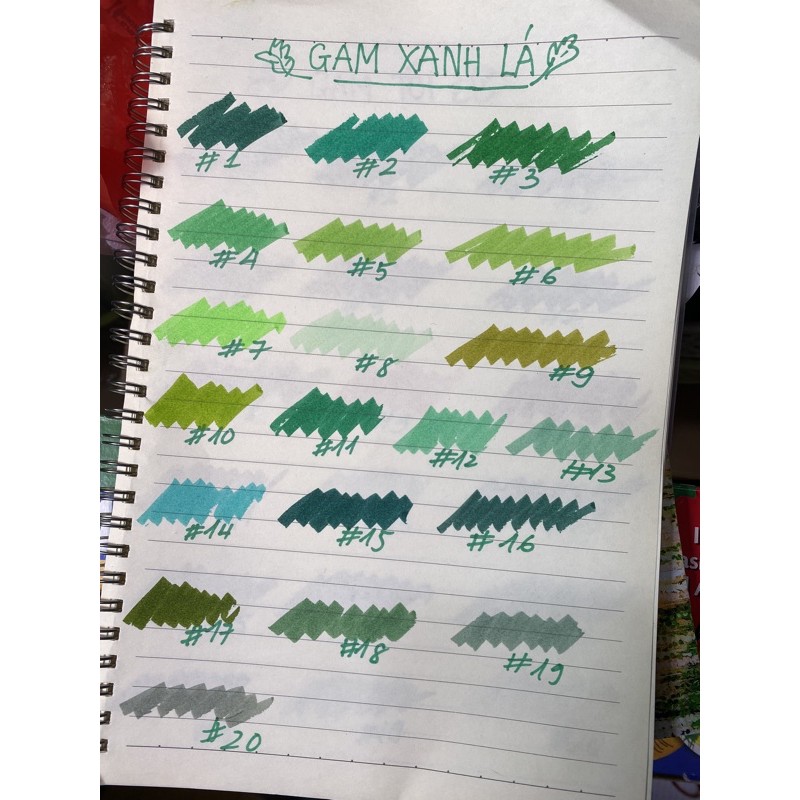 GAM XANH LÁ
#1 #2 #3
#4 #5 #6
#7 #8 #9
#10 #11 #12 #13
#14 #15 #16
#17 #18 #19
#20